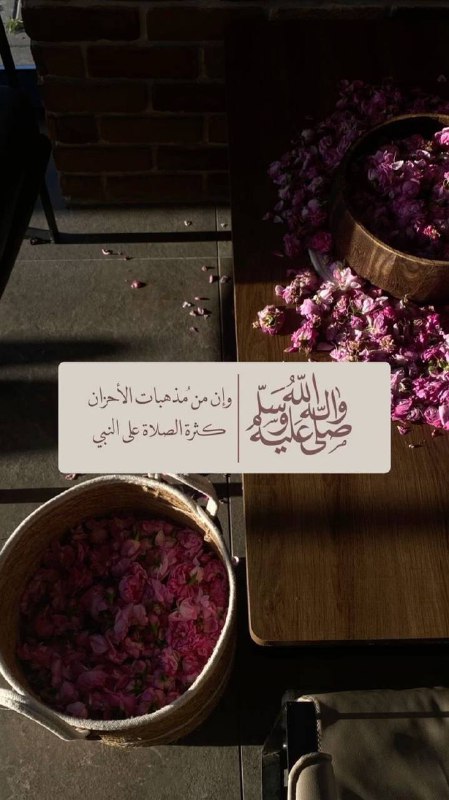 صلى الله عليه وآله وسلم
وإن من مُذهبات الأحزان
كثرة الصلاة على النبي